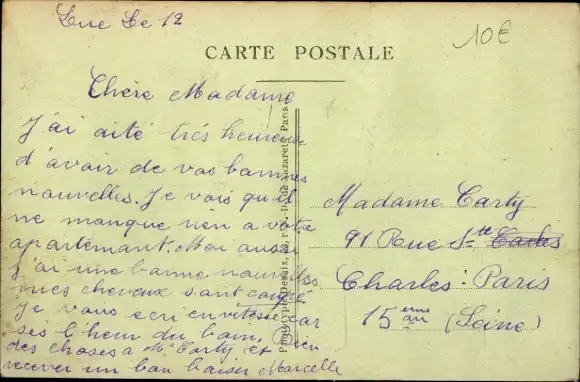 Luc Le 12
10€
CARTE POSTALE
Chère Madame
J'ai aité trés heureux
d'avoir de vos bonnes
nouvelles. Je vois qu'il
ne manque rien a votre
apartemant. Moi aussi
j'ai une bonne nouvelles
mes cheveux sont coupé
Je vous écri en vitesse car
ses l'heur du bain. Bien
des choses a Mr Carty et
recever un bon baiser Marcelle
Madame Carty
91 Rue Ste
Charles: Paris
15 ème arr (Seine)